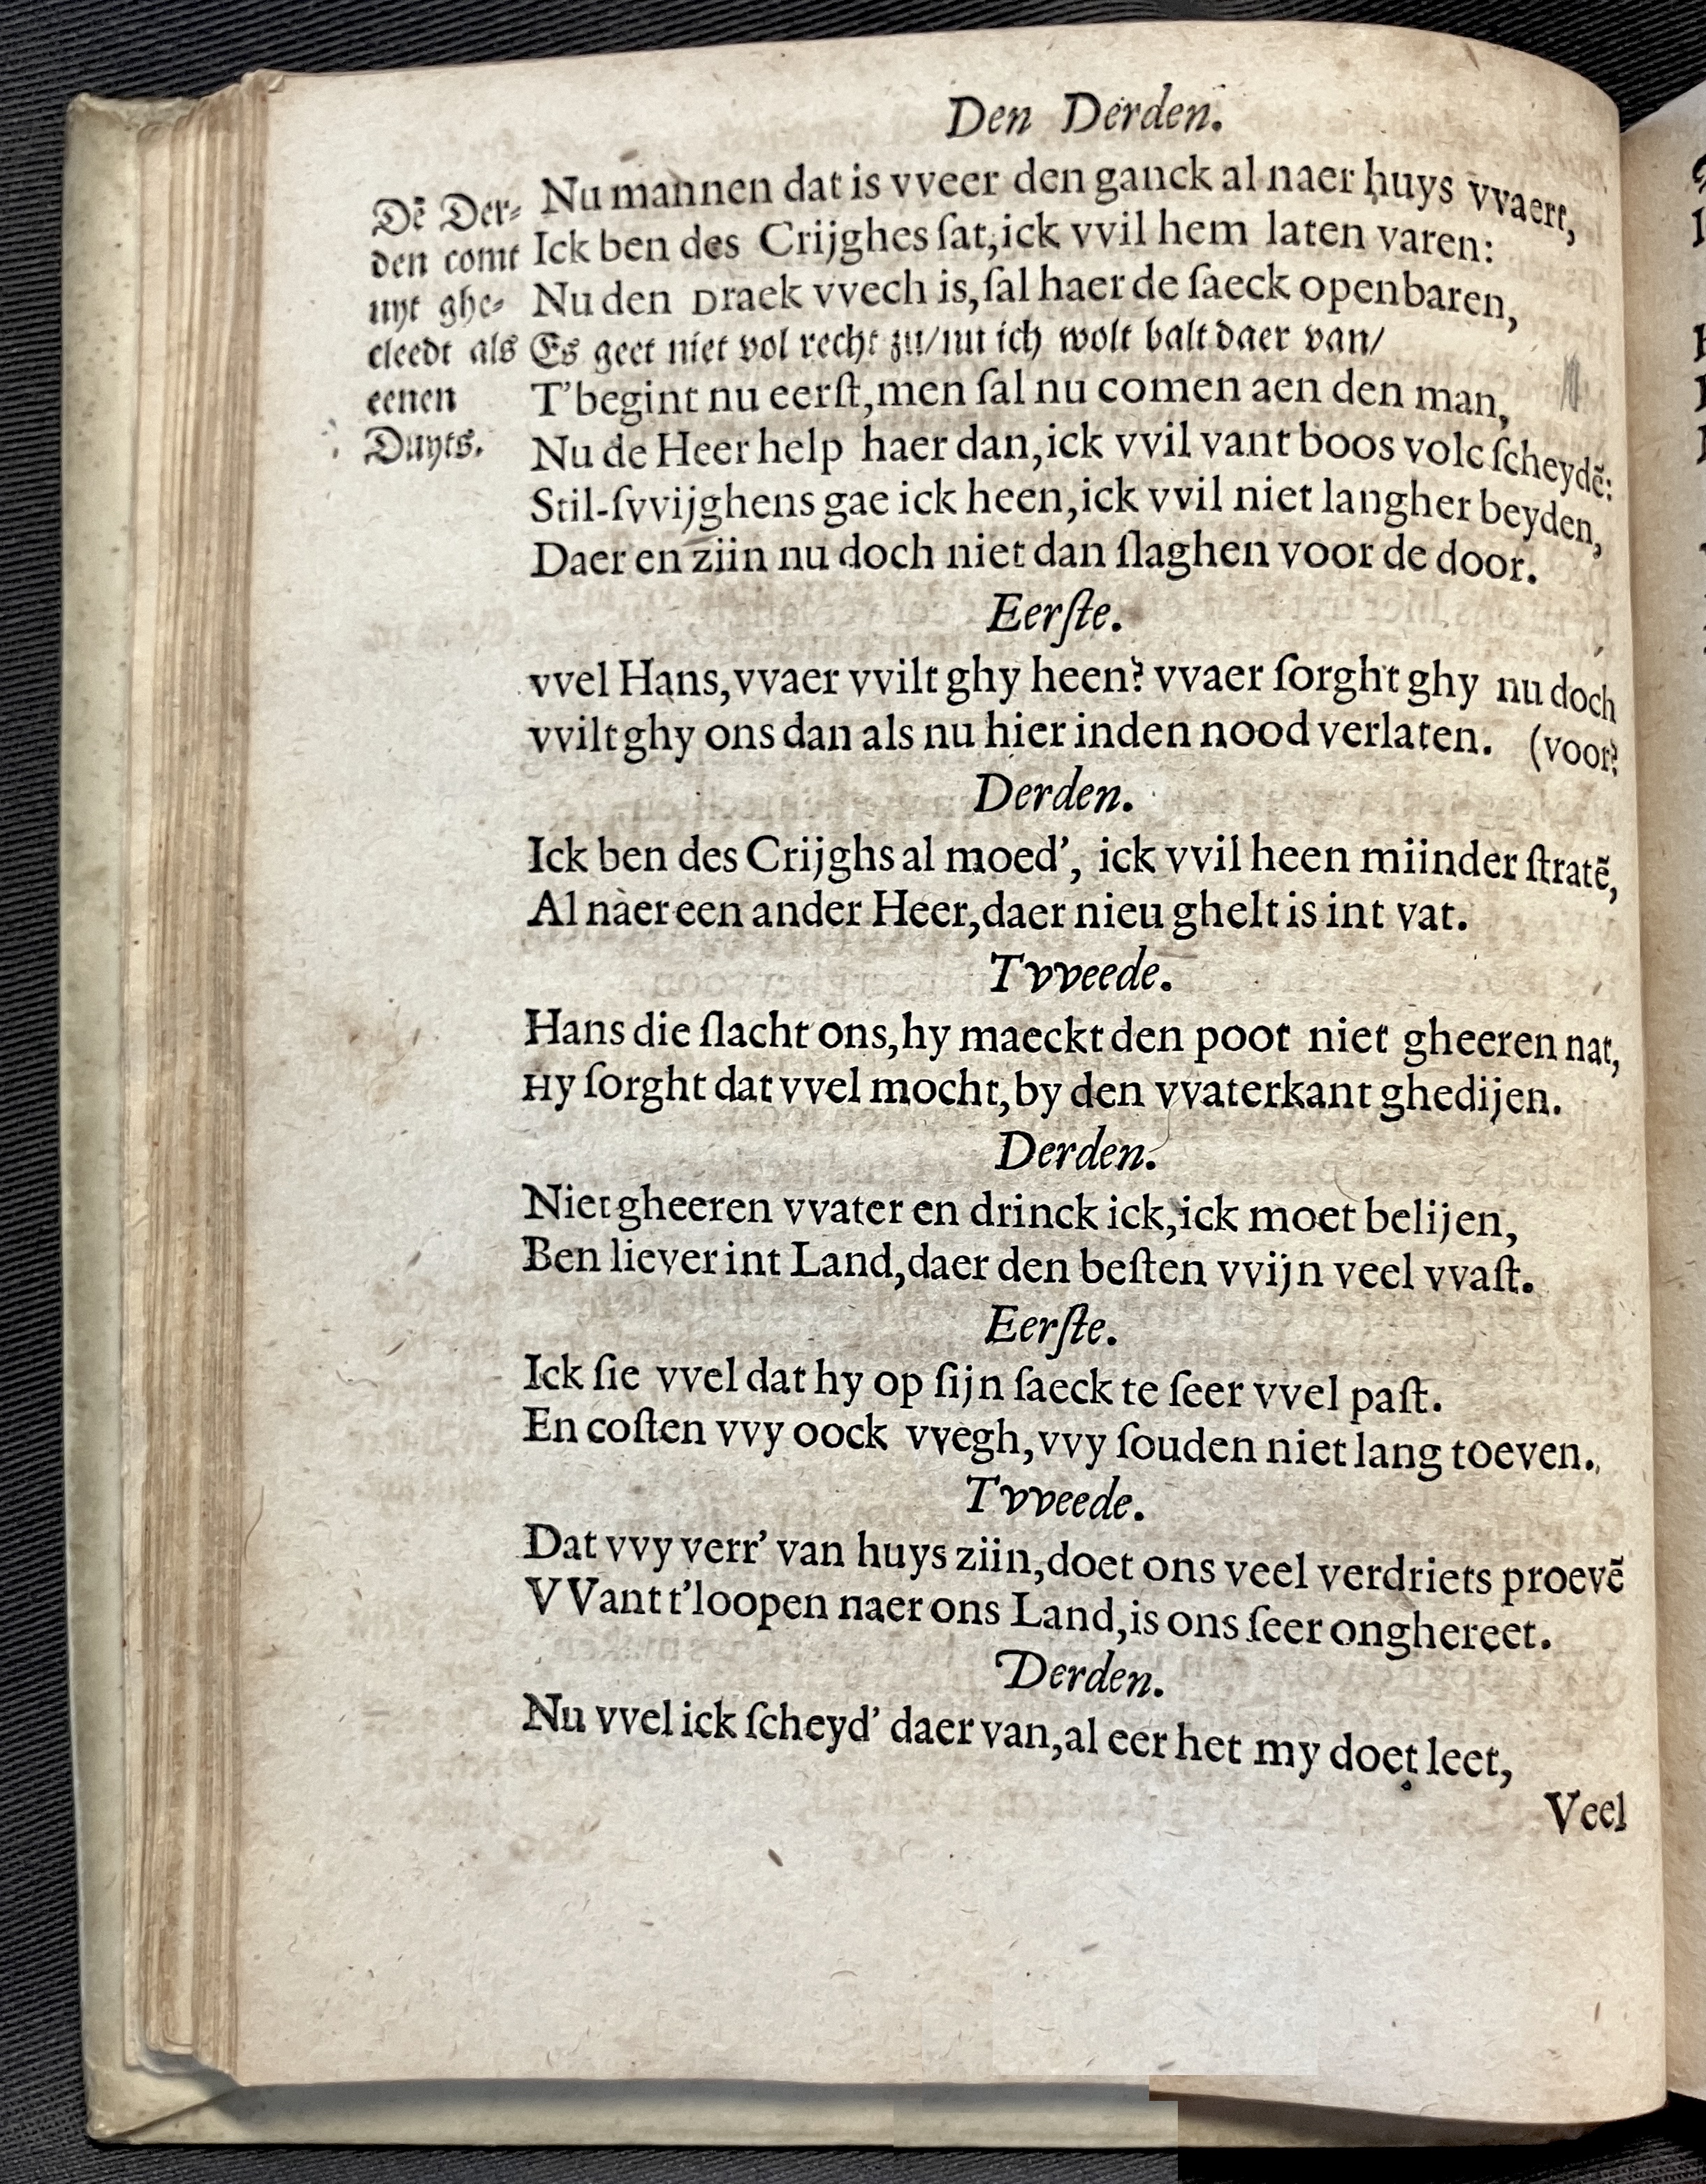 Den Derden.
Dē Der-
den comt
uyt ghe-
cleedt als
eenen
Duyts.
Nu mannen dat is vveer den ganck al naer huys vvaert,
Ick ben des Crijghes ſat, ick vvil hem laten varen:
Nu den Draek vvech is, ſal haer de ſaeck openbaren,
Es geet niet vol recht zu/nu ich wolt balt daer van/
T'begint nu eerſt, men ſal nu comen aen den man,
Nu de Heer help haer dan, ick vvil vant boos volc ſcheydē:
Stil-ſvvijghens gae ick heen, ick vvil niet langher beyden,
Daer en ziin nu doch niet dan ſlaghen voor de door.
Eerſte.
vvel Hans, vvaer vvilt ghy heen? vvaer ſorght ghy nu doch
vvilt ghy ons dan als nu hier inden nood verlaten. (voor?
Derden.
Ick ben des Crijghs al moed', ick vvil heen miinder ſtratē,
Al naer een ander Heer, daer nieu ghelt is int vat.
Tvveede.
Hans die ſlacht ons, hy maeckt den poot niet gheeren nat,
Hy ſorght dat vvel mocht, by den vvaterkant ghedijen.
Derden.
Niet gheeren vvater en drinck ick, ick moet belijen,
Ben liever int Land, daer den beſten vvijn veel vvaſt.
Eerſte.
Ick ſie vvel dat hy op ſijn ſaeck te ſeer vvel paſt.
En coſten vvy oock vvegh, vvy ſouden niet lang toeven.
Tvveede.
Dat vvy verr' van huys ziin, doet ons veel verdriets proevē
VVant t'loopen naer ons Land, is ons ſeer onghereet.
Derden.
Nu vvel ick ſcheyd' daer van, al eer het my doet leet,
Veel